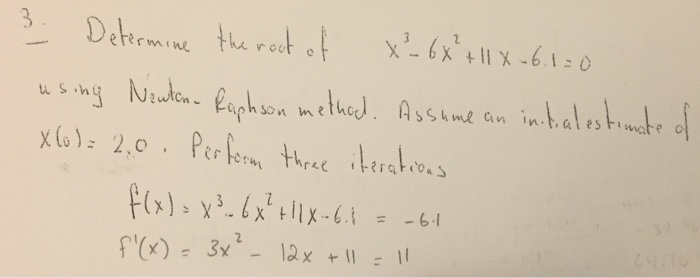 3. Determine the root of x³ - 6x² + 11x - 6.1 = 0
using Newton-Raphson method. Assume an initial estimate of
x(0) = 2.0. Perform three iterations
f(x) = x³ - 6x² + 11x - 6.1 = -6.1
f'(x) = 3x² - 12x + 11 = 11